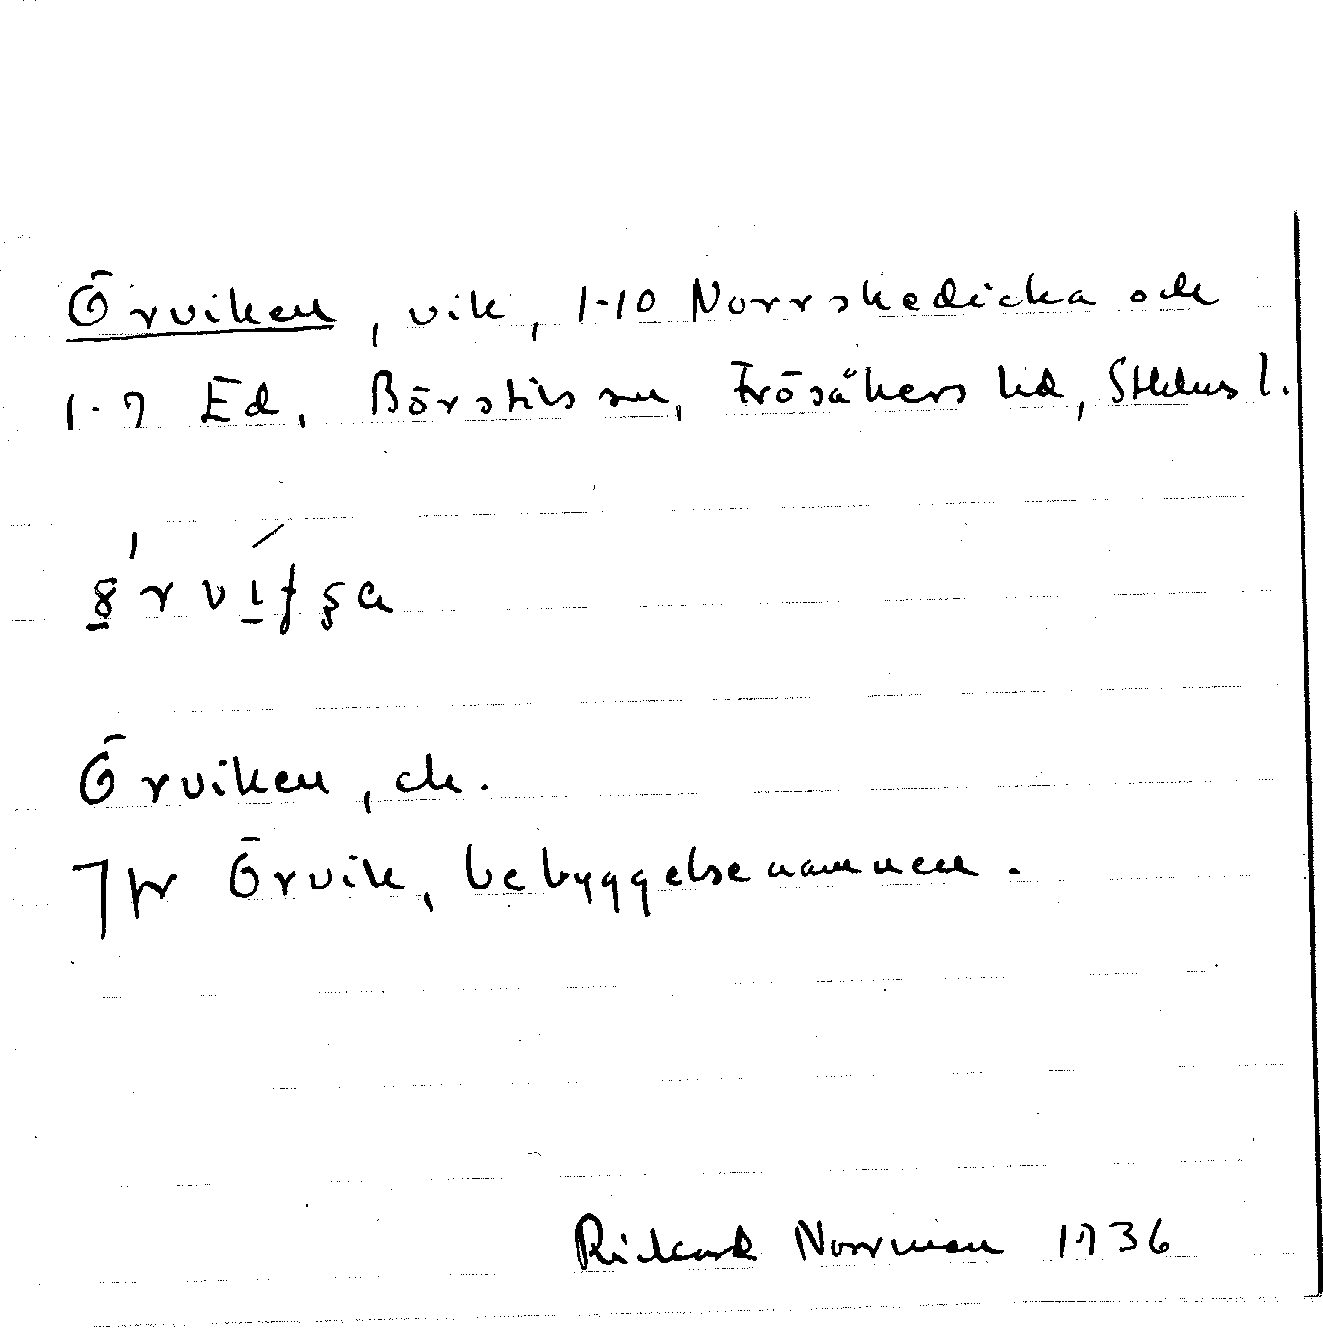 Örviken, vik, 1-10 Norrskedicka och
1-7 Ed, Börstils sn, Frösåkers hd, Sthlms l.
Örviken, ek.
Jfr Örvik, bebyggelsenamnen.
Rickard Norrman 1936